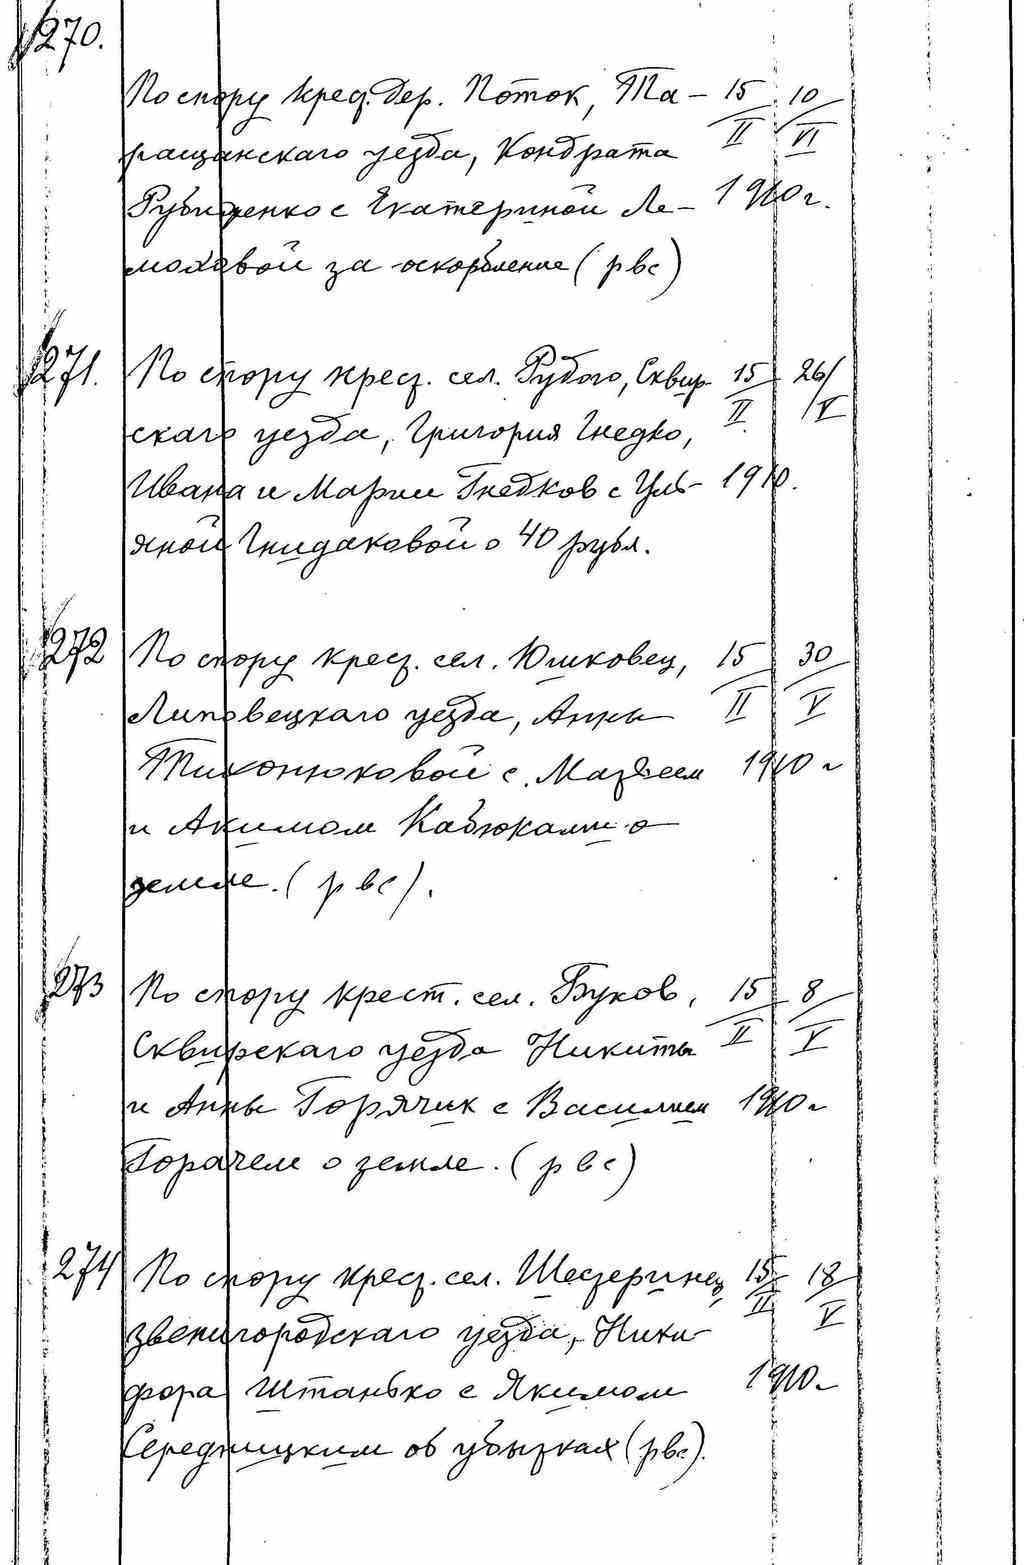 270.
По спору крес. дер. Поток, Та- 15/II 10/VI
ращанскаго уезда, Кондрата
с Екатериной Ле- 1910 г.
за оскорбление (рвс)
271. По спору крест. сел. Рубого, Сквир- 15/II 26/V
скаго уезда, Григория Гнедко,
Ивана и Марии Гнедков с Уль- 1910.
яной Гнидаковой о 40 рубл.
272 По спору крест. сел. Юшковец, 15/II 30/V
Липовецкаго уезда, Анны
Тихонюковой с Матвеем 1910 г
и Акимом Кабюками о
земле. (рвс).
273 По спору крест. сел. Буков, 15/II 8/V
Сквирскаго уезда Никиты
и Анны Горячик с Василием 1910 г
Горачем о земле. (рвс)
274 По спору крест. сел. Шестеринец 15/II 18/V
звенигородскаго уезда, Ники-
фора Штанько с Якимом 1910 г
Середницким об убытках (рвс).